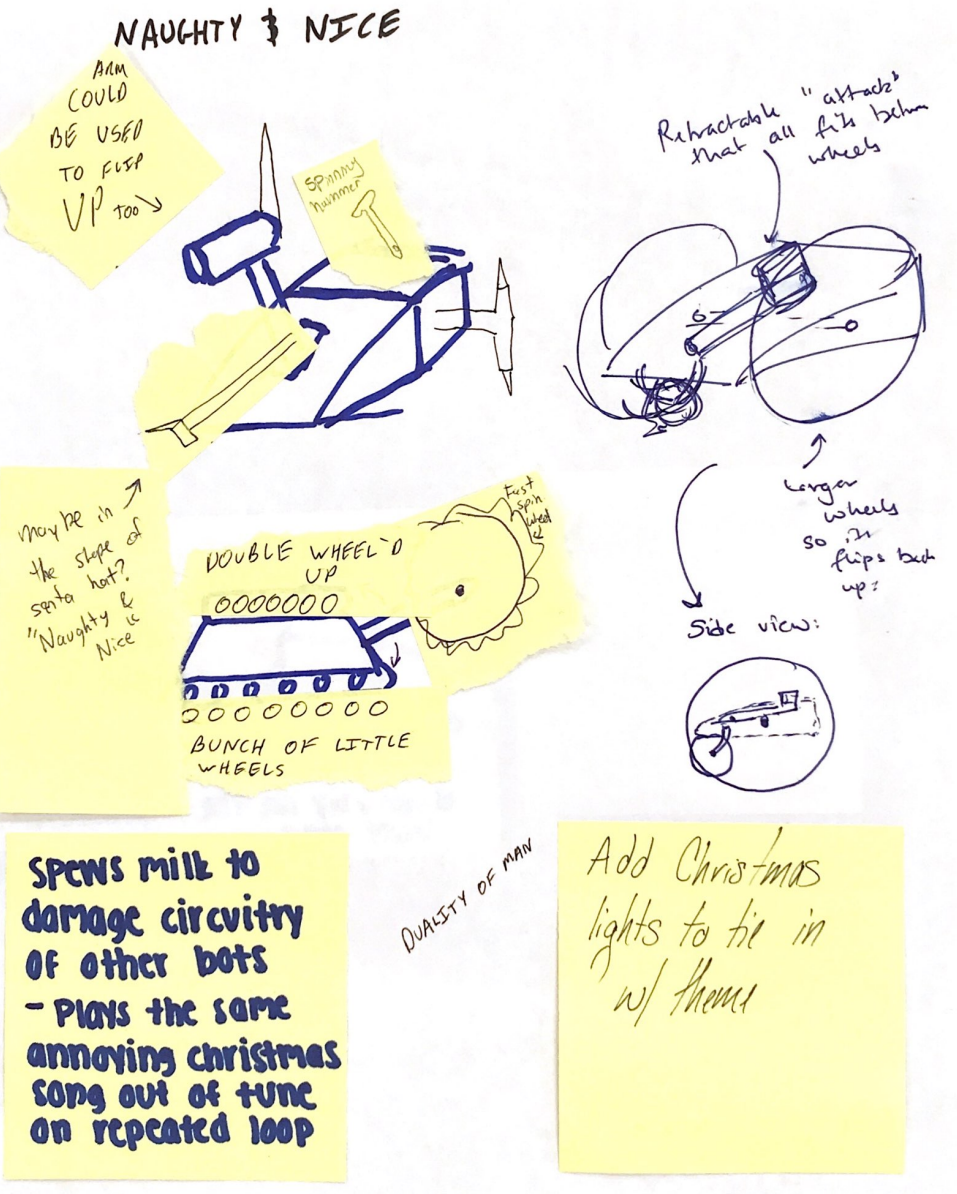 NAUGHTY & NICE
ARM
COULD
BE USED
TO FLIP
UP TOO
Spinning
hammer
Retractable "attack"
that all fits between
wheels
maybe in
the shape of
santa hat?
"Naughty &
Nice
DOUBLE WHEEL'D
UP
Fast
spin
wheel
BUNCH OF LITTLE
WHEELS
Larger
wheels
so it
flips back
up?
Side view:
spews milk to
damage circuitry
of other bots
- Plays the same
annoying christmas
song out of tune
on repeated loop
DUALITY OF MAN
Add Christmas
lights to tie in
w/ theme